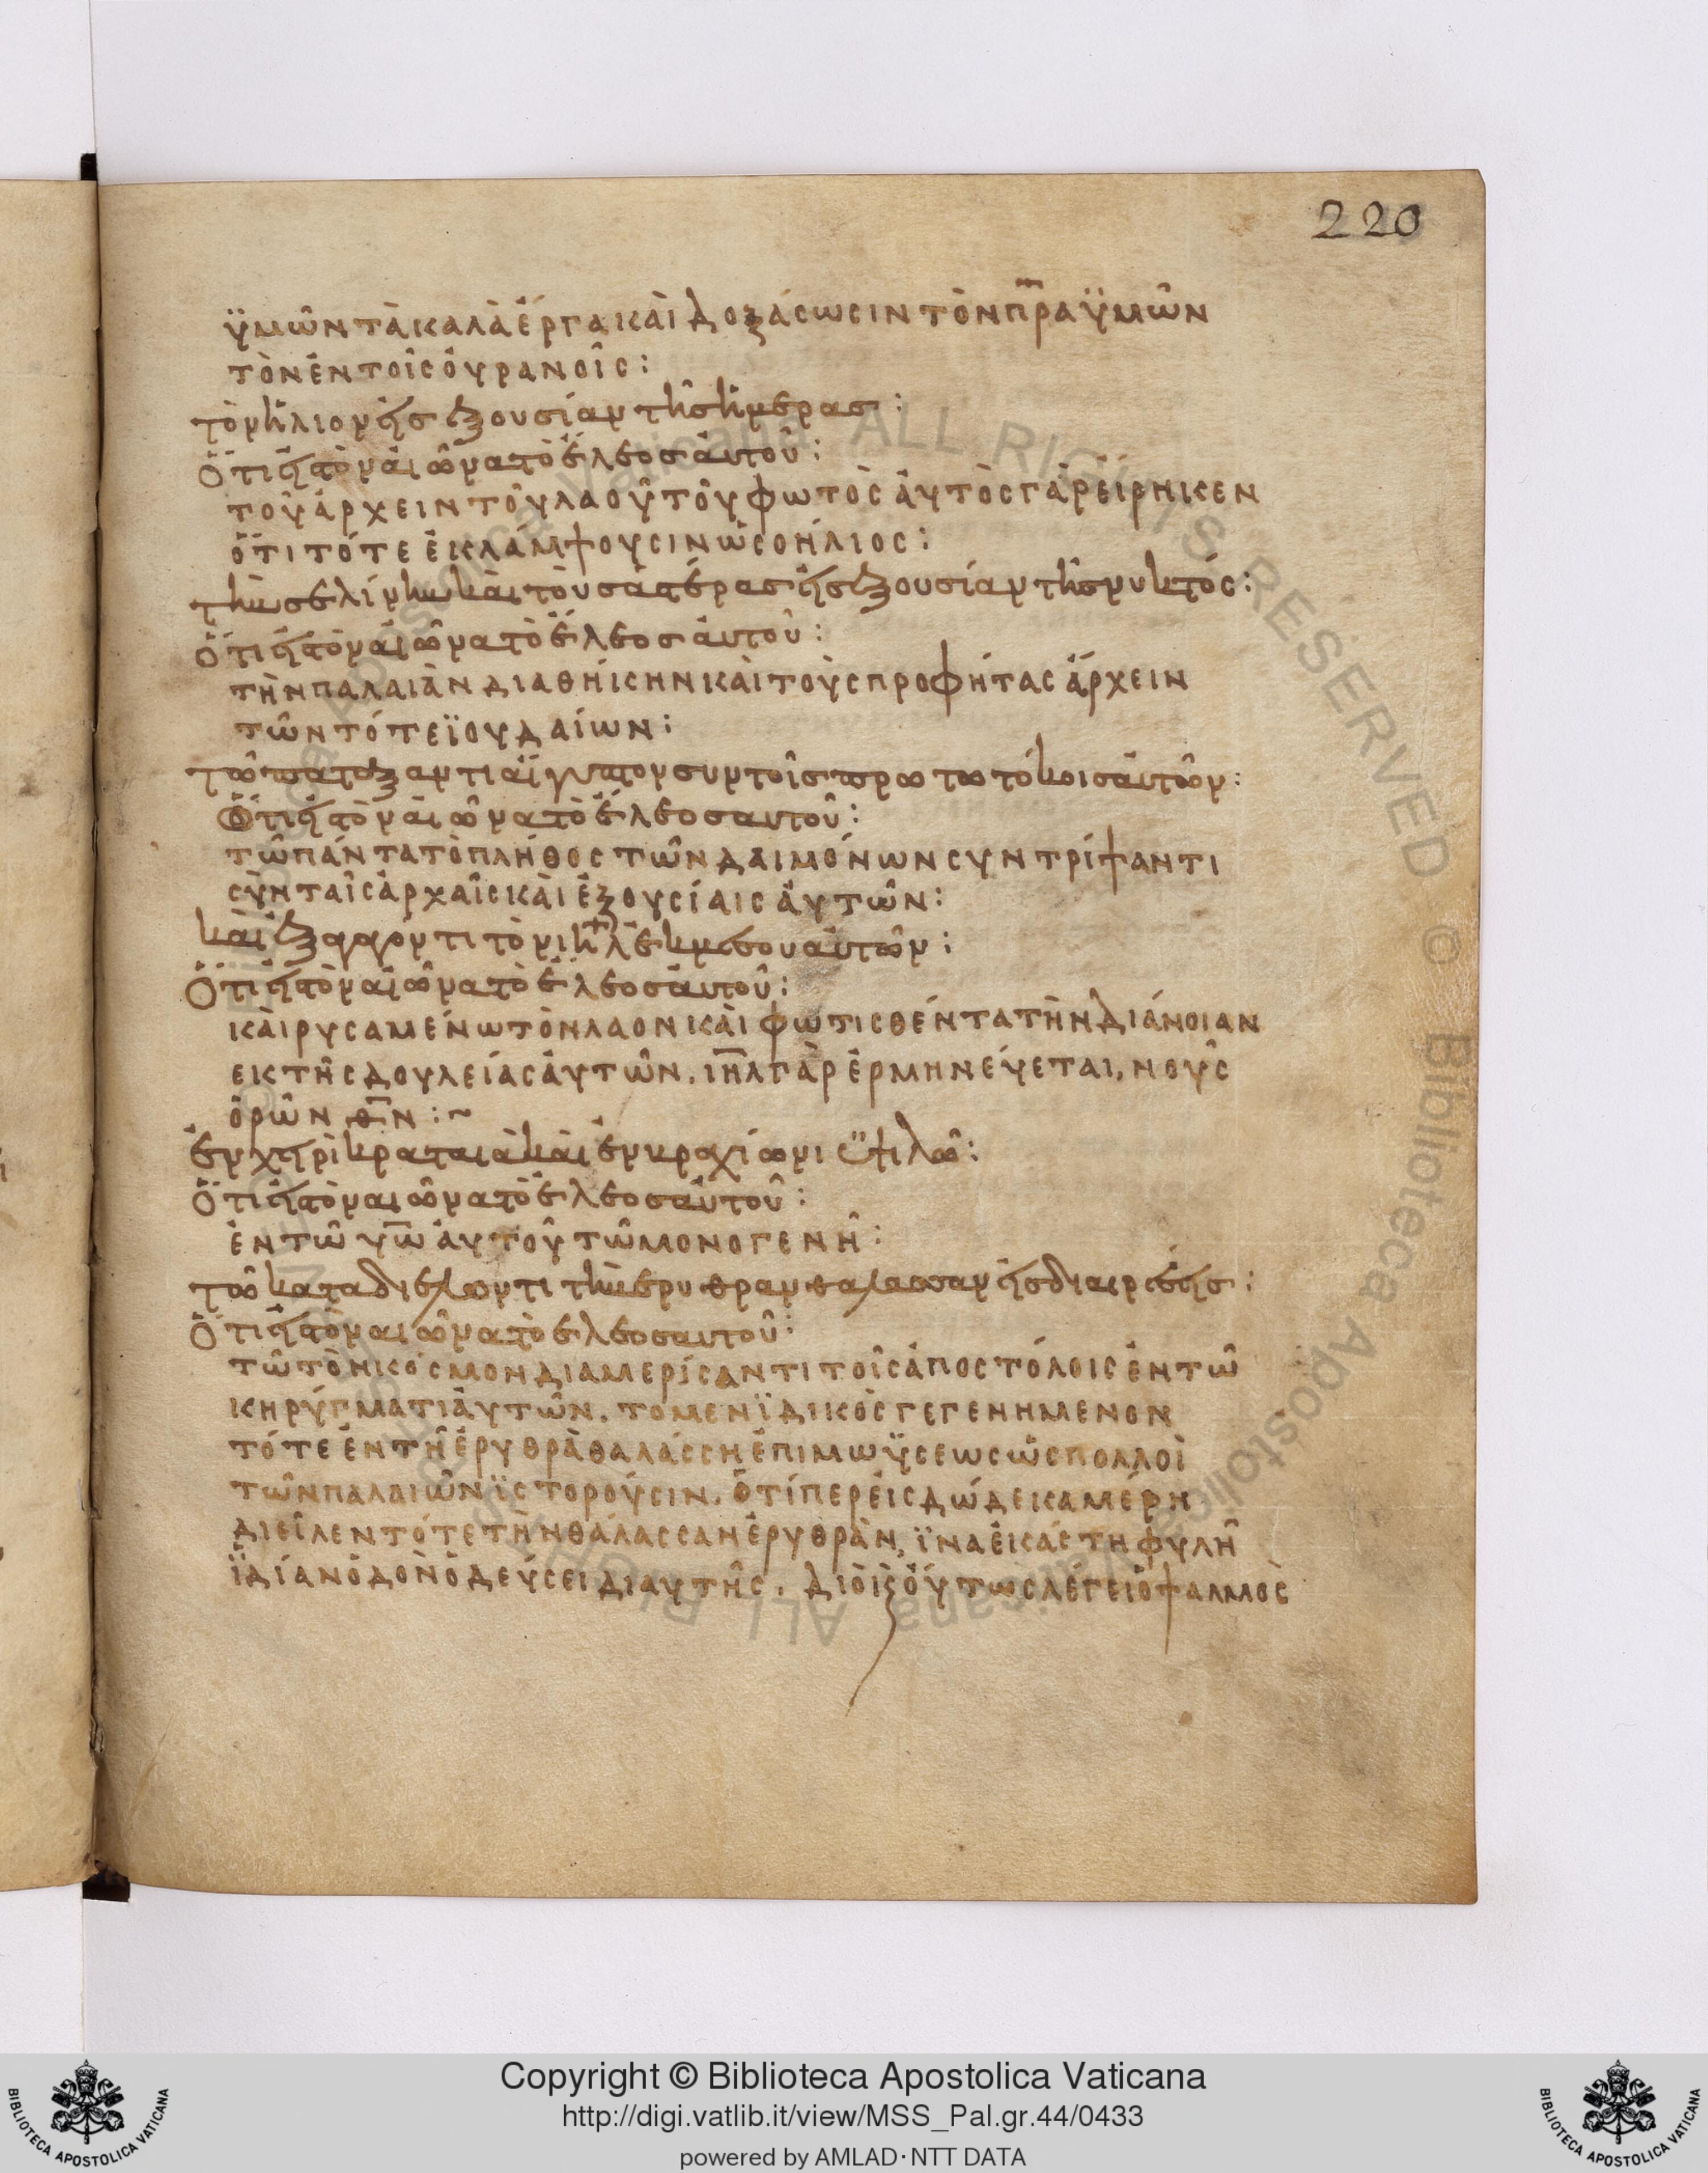 220
ϋμῶν τὰ καλὰ ἔργα καὶ δοξάσωσιν τὸν π̅ρ̅α̅ ϋμῶν
τὸν ἐν τοῖς οὐρανοῖς:
τὸν ἥλιον εἰς ἐξουσίαν τῆς ἡμέρας:
Ὅτι εἰς τὸν αἰῶνα τὸ ἔλεος αὐτοῦ:
τοῦ ἄρχειν τοῦ λαοῦ τοῦ φωτὸς αὐτὸς γὰρ εἴρηκεν
ὅτι τότε ἐκλάμψουσιν ὡς ο ἥλιος:
τὴν σελίνην καὶ τοὺσ ἀστέρας εἰς ἐξουσίαν τῆς νυκτός:
Ὅτι εἰς τὸν αἰῶνα τὸ ἔλεος αὐτοῦ:
τὴν παλαιὰν διαθήκην καὶ τοὺς προφήτας ἄρχειν
τῶν τότε ϊουδαίων:
τῶ πατάξαντι αἴγυπτον συν τοῖς πρωτωτόκοις αὐτῶν:
Ὅτι εἰς τὸν αἰῶνα τὸ ἔλεος αυτοῦ:
τῶ πάντα τὸ πλήθος τῶν δαιμόνων συντρίψαντι
σὺν ταῖς ἀρχαῖς καὶ ἐξουσίαις αὐτῶν:
καὶ ἐξαγαγοντι τὸν ι̅η̅λ̅ ἐκ μέσου αὐτῶν:
Ὅτι εἰς τὸν αἰῶνα τὸ ἔλεος αὐτοῦ:
καὶ ρυσαμένω τὸν λαον καὶ φωτισθέντα τὴν διάνοιαν
εκ τῆς δουλείας αὐτῶν. ι̅η̅λ̅ γὰρ ἑρμηνεύεται, νοῦς
ὁρῶν θ̅ν̅:~
ἐν χειρὶ κραταιὰ καὶ ἐν βραχίωνι ϋψιλῶ:
Ὅτι εἰς τὸν αιῶνα τὸ ἔλεος αὐτοῦ:
ἐν τῶ υ̅ω̅ αὐτοῦ τῶ μονογενῆ:
τῶ καταδιελοντι τὴν ερυθραν θαλασσαν εἰς διαιρέσεις:
Ὅτι εἰς τὸν αιῶνα τὸ ελεος αυτοῦ:
τῶ τὸν κόσμον διαμερίσαντι τοῖς ἀποστόλοις ἐν τῶ
κηρύγματι αὐτῶν. το μεν ϊδικὸς γεγενημενον
τότε ἐν τῆ ἐρυθρὰ θαλάσση ἐπι μωϋσεως ὡς πολλοὶ
τῶν παλαιῶν ϊστορούσιν. ὅτί περ εἰς δώδεκα μέρη
διεῖλεν τότε τὴν θάλασσαν ἐρυθρὰν, ϊνα ἑκάστη φυλῆ
ϊδίαν ὁδὸν ὁδεύσει δι αυτῆς. διὸ κ οὕτως λέγει ὁ ψαλμὸς
Copyright © Biblioteca Apostolica Vaticana
http://digi.vatlib.it/view/MSS_Pal.gr.44/0433
powered by AMLAD·NTT DATA
BIBLIOTECA APOSTOLICA VATICANA
BIBLIOTECA APOSTOLICA VATICANA